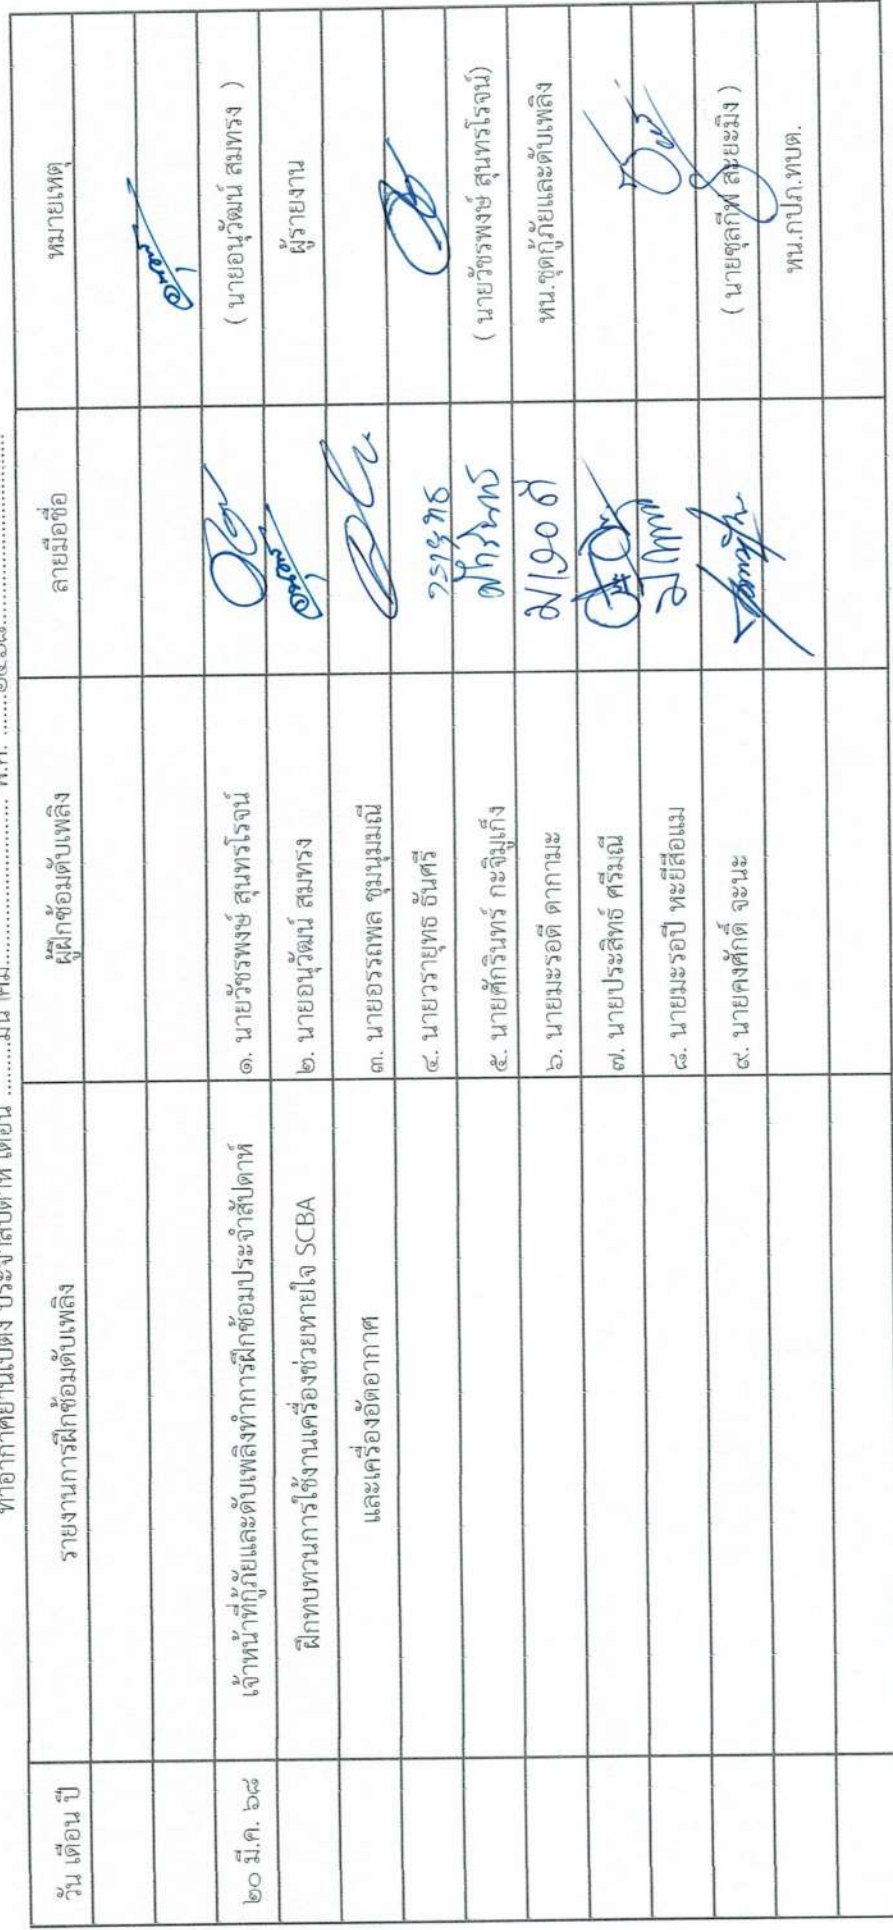 ท่าอากาศยานเบตง ประจำสัปดาห์ เดือน ..........มีนาคม.......... พ.ศ. .......๒๕๖๘..........
วัน เดือน ปี รายงานการฝึกซ้อมดับเพลิง ผู้ฝึกซ้อมดับเพลิง ลายมือชื่อ หมายเหตุ
๒๐ มี.ค. ๖๘ เจ้าหน้าที่กู้ภัยและดับเพลิงทำการฝึกซ้อมประจำสัปดาห์ ๑. นายวัชรพงษ์ สุนทรโรจน์ ( นายอนุวัฒน์ สมทรง )
ฝึกทบทวนการใช้งานเครื่องช่วยหายใจ SCBA ๒. นายอนุวัฒน์ สมทรง ผู้รายงาน
และเครื่องอัดอากาศ ๓. นายอรรถพล ชุมนุมมณี
๔. นายวรายุทธ ธันศรี วรายุทธ
๕. นายศักรินทร์ กะจิมูเก็ง ศักรินทร์ ( นายวัชรพงษ์ สุนทรโรจน์)
๖. นายมะรอดี ดากามะ หน.ชุดกู้ภัยและดับเพลิง
๗. นายประสิทธิ์ ศรีมณี
๘. นายมะรอปี หะยีสือแม
๙. นายคงศักดิ์ จะนะ ( นายซุลกีฟ สะยะมิง )
หน.กปภ.ทบต.